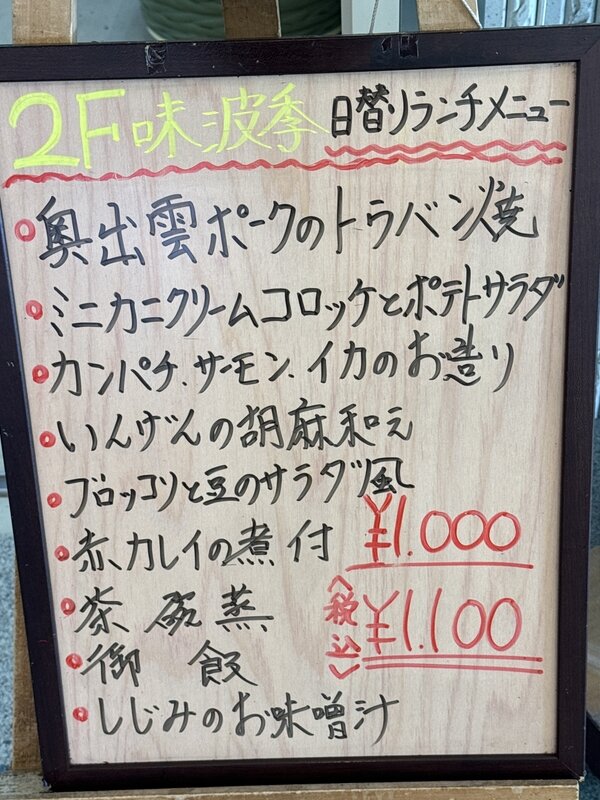 2F 味波季 日替りランチメニュー
奥出雲ポークのトウバン焼
ミニカニクリームコロッケとポテトサラダ
カンパチ、サーモン、イカのお造り
いんげんの胡麻和え
ブロッコリと豆のサラダ風
赤カレイの煮付 ¥1.000
茶蒸 〈税込〉 ¥1.100
御飯
しじみのお味噌汁